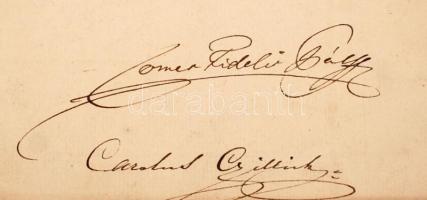 Comes Fidelis Pálffy
darabanth
Carolus